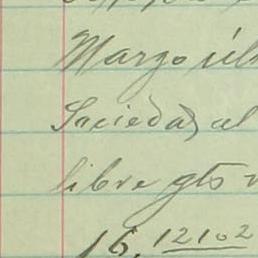 Marzo últ
Sociedad al
libre gts
15.12102